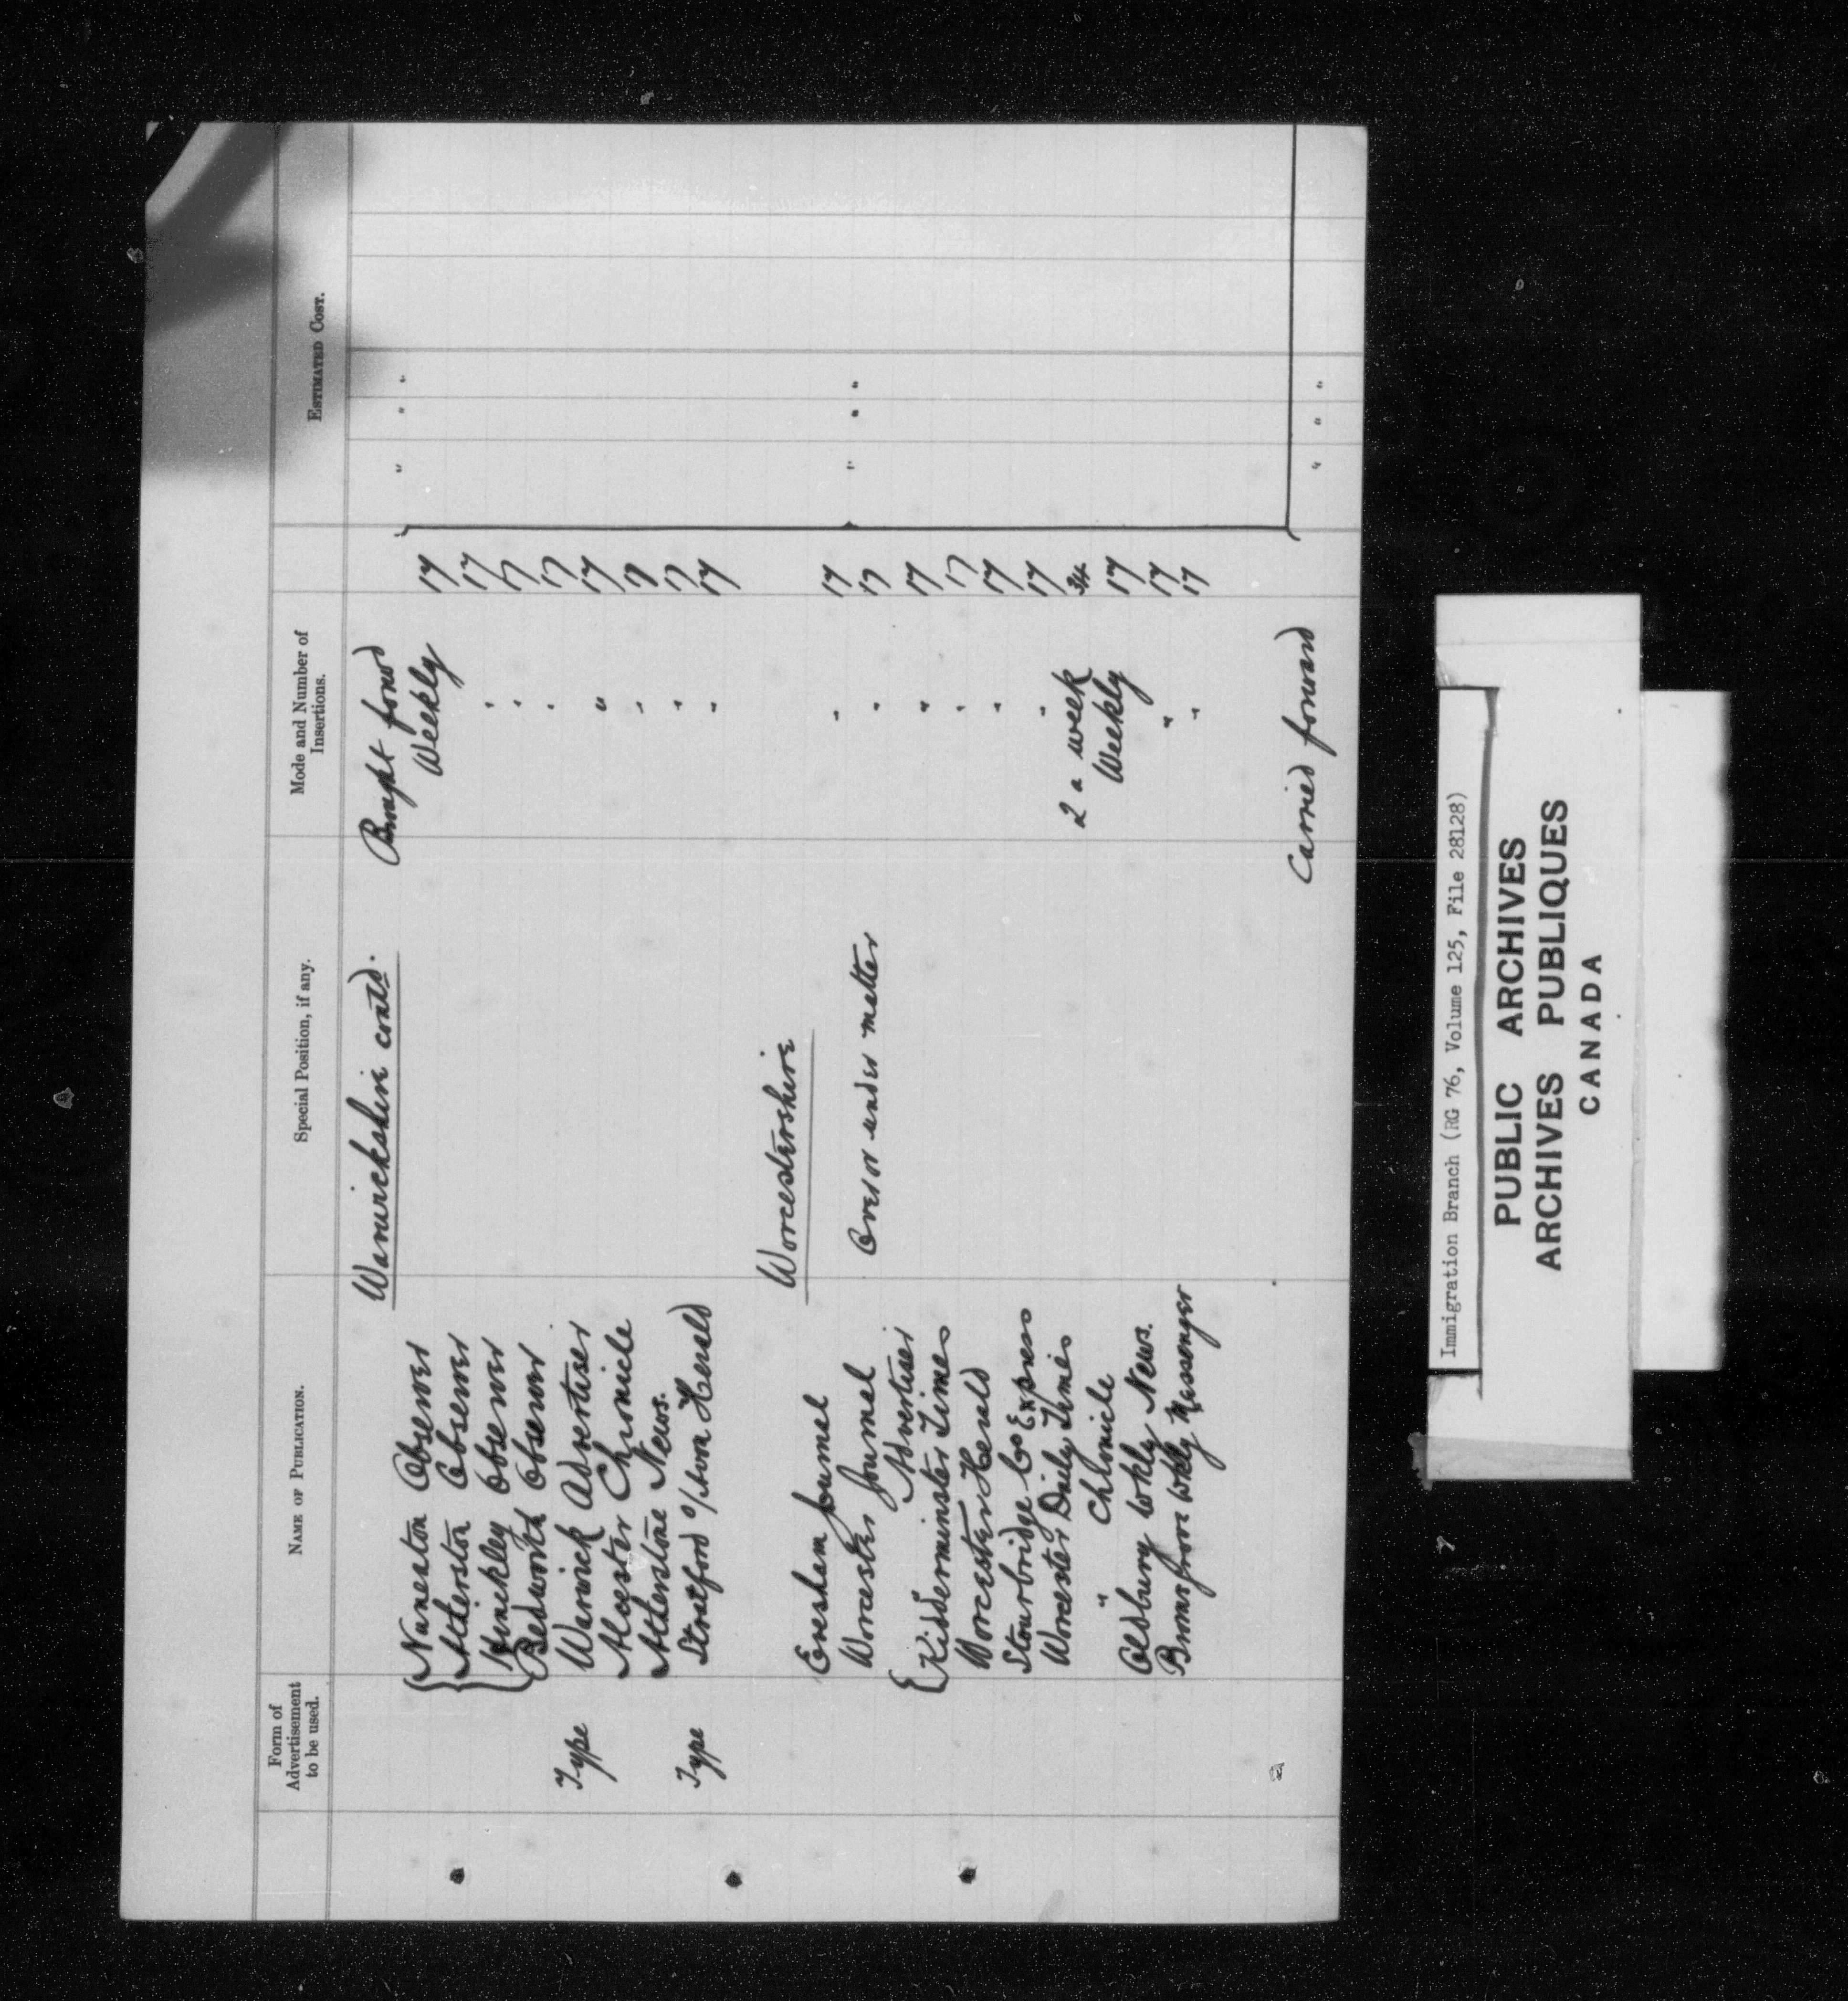 Form of Advertisement to be used. NAME OF PUBLICATION. Special Position, if any. Mode and Number of Insertions. ESTIMATED COST.
Warwickshire contd. Brought forwd " " "
Nuneaton Observer Weekly 17
Atherston Observer " 17
Hinckley Observer " 17
Bedworth Observer " 17
Type Warwick Advertiser " 17
Alcester Chronicle " 17
Atherstone News. " 17
Type Stratford o/Avon Herald " 17
Worcestershire
Evesham Journal " 17 " " "
Worcester Journal Over or under matter " 17
Kidderminster Advertiser " 17
Times " 17
Worcester Herald " 17
Stourbridge Co Express " 17
Worcester Daily Times 2 a week 34
" Chronicle Weekly 17
Oldbury Wkly News. " 17
Bromsgrove Wkly Messenger " 17
Carried forward " " "
Immigration Branch (RG 76, Volume 125, File 28128)
PUBLIC ARCHIVES
ARCHIVES PUBLIQUES
CANADA